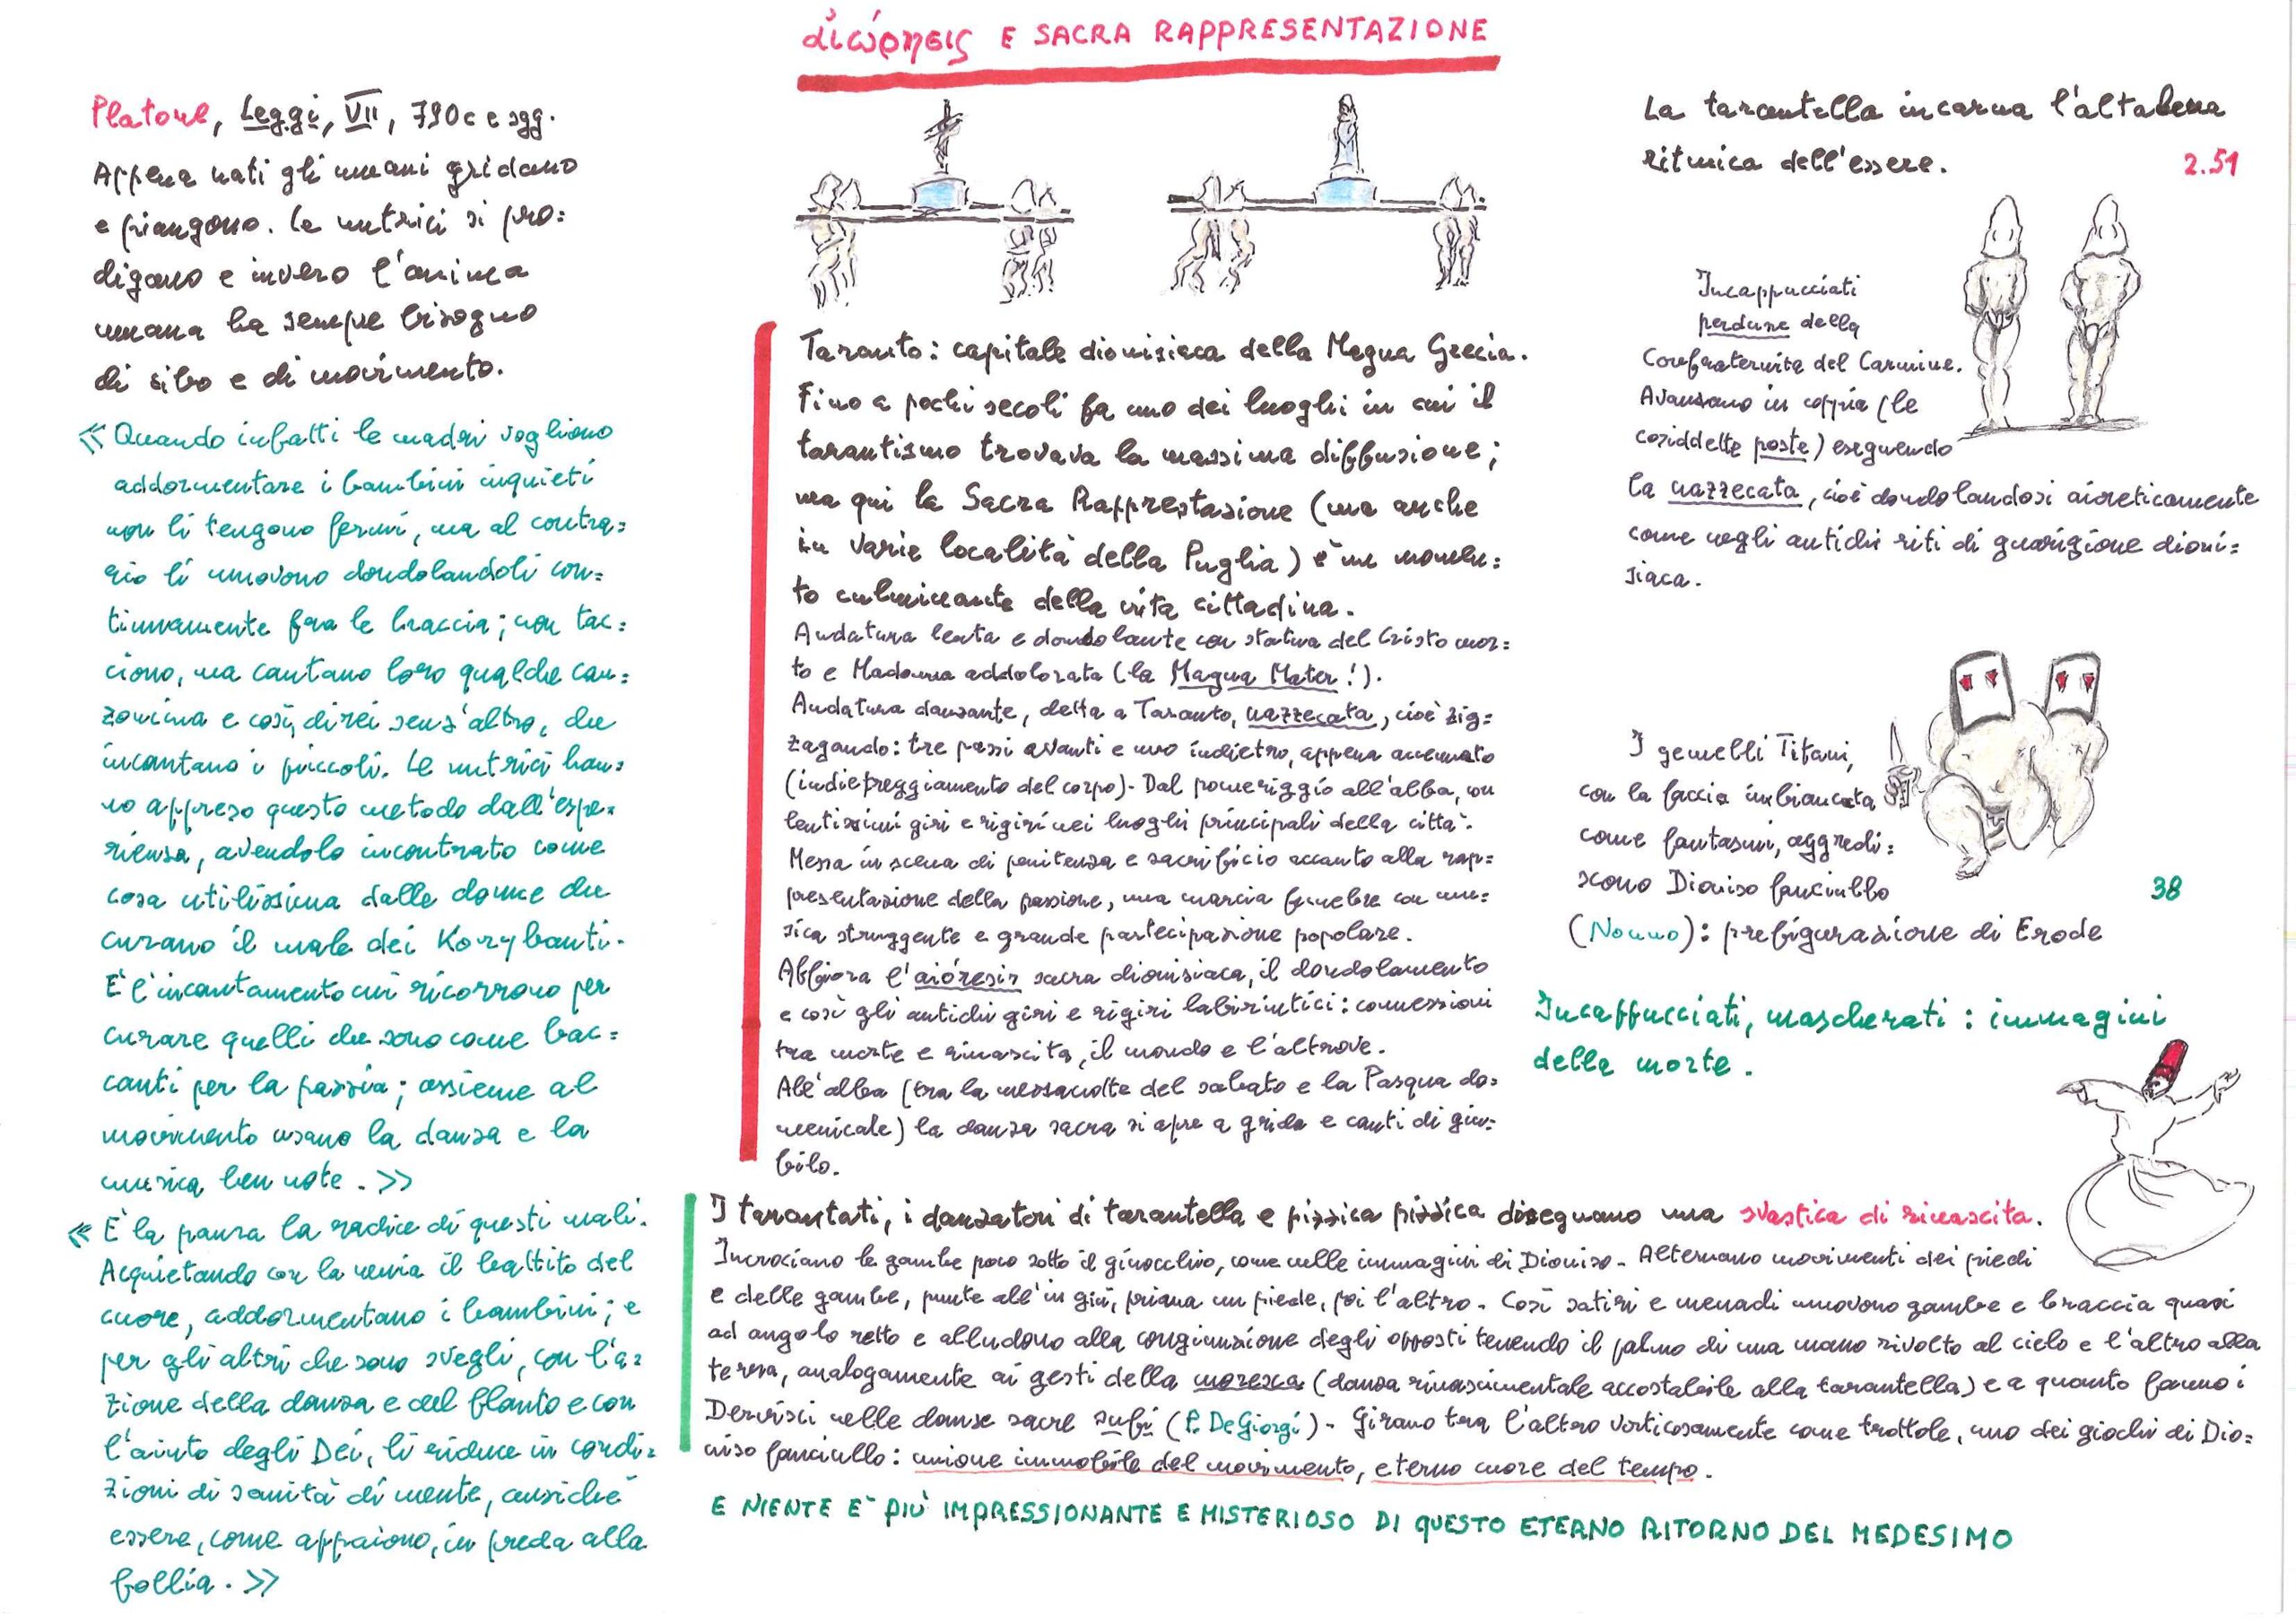 αἰώρησις E SACRA RAPPRESENTAZIONE
Platone, Leggi, VII, 790c e sgg.
Appena nati gli umani gridano
e piangono. Le nutrici si pro=
digano e invero l'anima
umana ha sempre bisogno
di cibo e di movimento.
«Quando infatti le madri vogliono
addormentare i bambini inquieti
non li tengono fermi, ma al contra=
rio li muovono dondolandoli con=
tinuamente fra le braccia; non tac=
ciono, ma cantano loro qualche can=
zoncina e così, direi senz'altro, che
incantano i piccoli. Le nutrici han=
no appreso questo metodo dall'espe=
rienza, avendolo incontrato come
cosa utilissima dalle donne che
curano il male dei Korybanti.
È l'incantamento cui ricorrono per
curare quelli che sono come bac=
canti per la pazzia; assieme al
movimento usano la danza e la
musica ben note.»
«È la paura la radice di questi mali.
Acquietando con la nenia il battito del
cuore, addormentano i bambini; e
per gli altri che sono svegli, con l'a=
zione della danza e del flauto e con
l'aiuto degli Dei, li riduce in condi=
zioni di sanità di mente, ansiché
essere, come appaiono, in preda alla
follia.»
Taranto: capitale dionisiaca della Magna Grecia.
Fino a pochi secoli fa uno dei luoghi in cui il
tarantismo trovava la massima diffusione;
ma qui la Sacra Rapprestazione (ma anche
in varie località della Puglia) è un momen=
to culminante della vita cittadina.
Andatura lenta e dondolante con statua del Cristo mor=
to e Madonna addolorata (la Magna Mater!).
Andatura danzante, detta a Taranto, nazzecata, cioè zig=
zagando: tre passi avanti e uno indietro, appena accennato
(indietreggiamento del corpo). Dal pomeriggio all'alba, con
lentissimi giri e rigiri nei luoghi principali della città.
Messa in scena di penitenza e sacrificio accanto alla rap=
presentazione della passione, una marcia funebre con mu=
sica struggente e grande partecipazione popolare.
Affiora l'aióresis sacra dionisiaca, il dondolamento
e così gli antichi giri e rigiri labirintici: connessioni
tra morte e rinascita, il mondo e l'altrove.
All'alba (tra la mezzanotte del sabato e la Pasqua do=
menicale) la danza sacra si apre a grida e canti di giu=
bilo.
La tarantella incarna l'altalena
ritmica dell'essere. 2.51
Incappucciati
perdune della
Confraternita del Carmine.
Avanzano in coppia (le
cosiddette poste) eseguendo
la nazzecata, cioè dondolandosi aioreticamente
come negli antichi riti di guarigione dioni=
siaca.
I gemelli Titani,
con la faccia imbiancata
come fantasmi, aggredi=
scono Dioniso fanciullo 38
(Nonno): prefigurazione di Erode
Incappucciati, mascherati: immagini
della morte.
I tarantati, i danzatori di tarantella e pizzica pizzica disegnano una svastica di rinascita.
Incrociano le gambe poco sotto il ginocchio, come nelle immagini di Dioniso. Alternano movimenti dei piedi
e delle gambe, punte all'in giù, prima un piede, poi l'altro. Così satiri e menadi muovono gambe e braccia quasi
ad angolo retto e alludono alla congiunzione degli opposti tenendo il palmo di una mano rivolto al cielo e l'altro alla
terra, analogamente ai gesti della moresca (danza rinascimentale accostabile alla tarantella) e a quanto fanno i
Dervisci nelle danze sacre sufi (P. De Giorgi). Girano tra l'altro vorticosamente come trottole, uno dei giochi di Dio=
niso fanciullo: unione immobile del movimento, eterno cuore del tempo.
E NIENTE E' PIÙ IMPRESSIONANTE E MISTERIOSO DI QUESTO ETERNO RITORNO DEL MEDESIMO